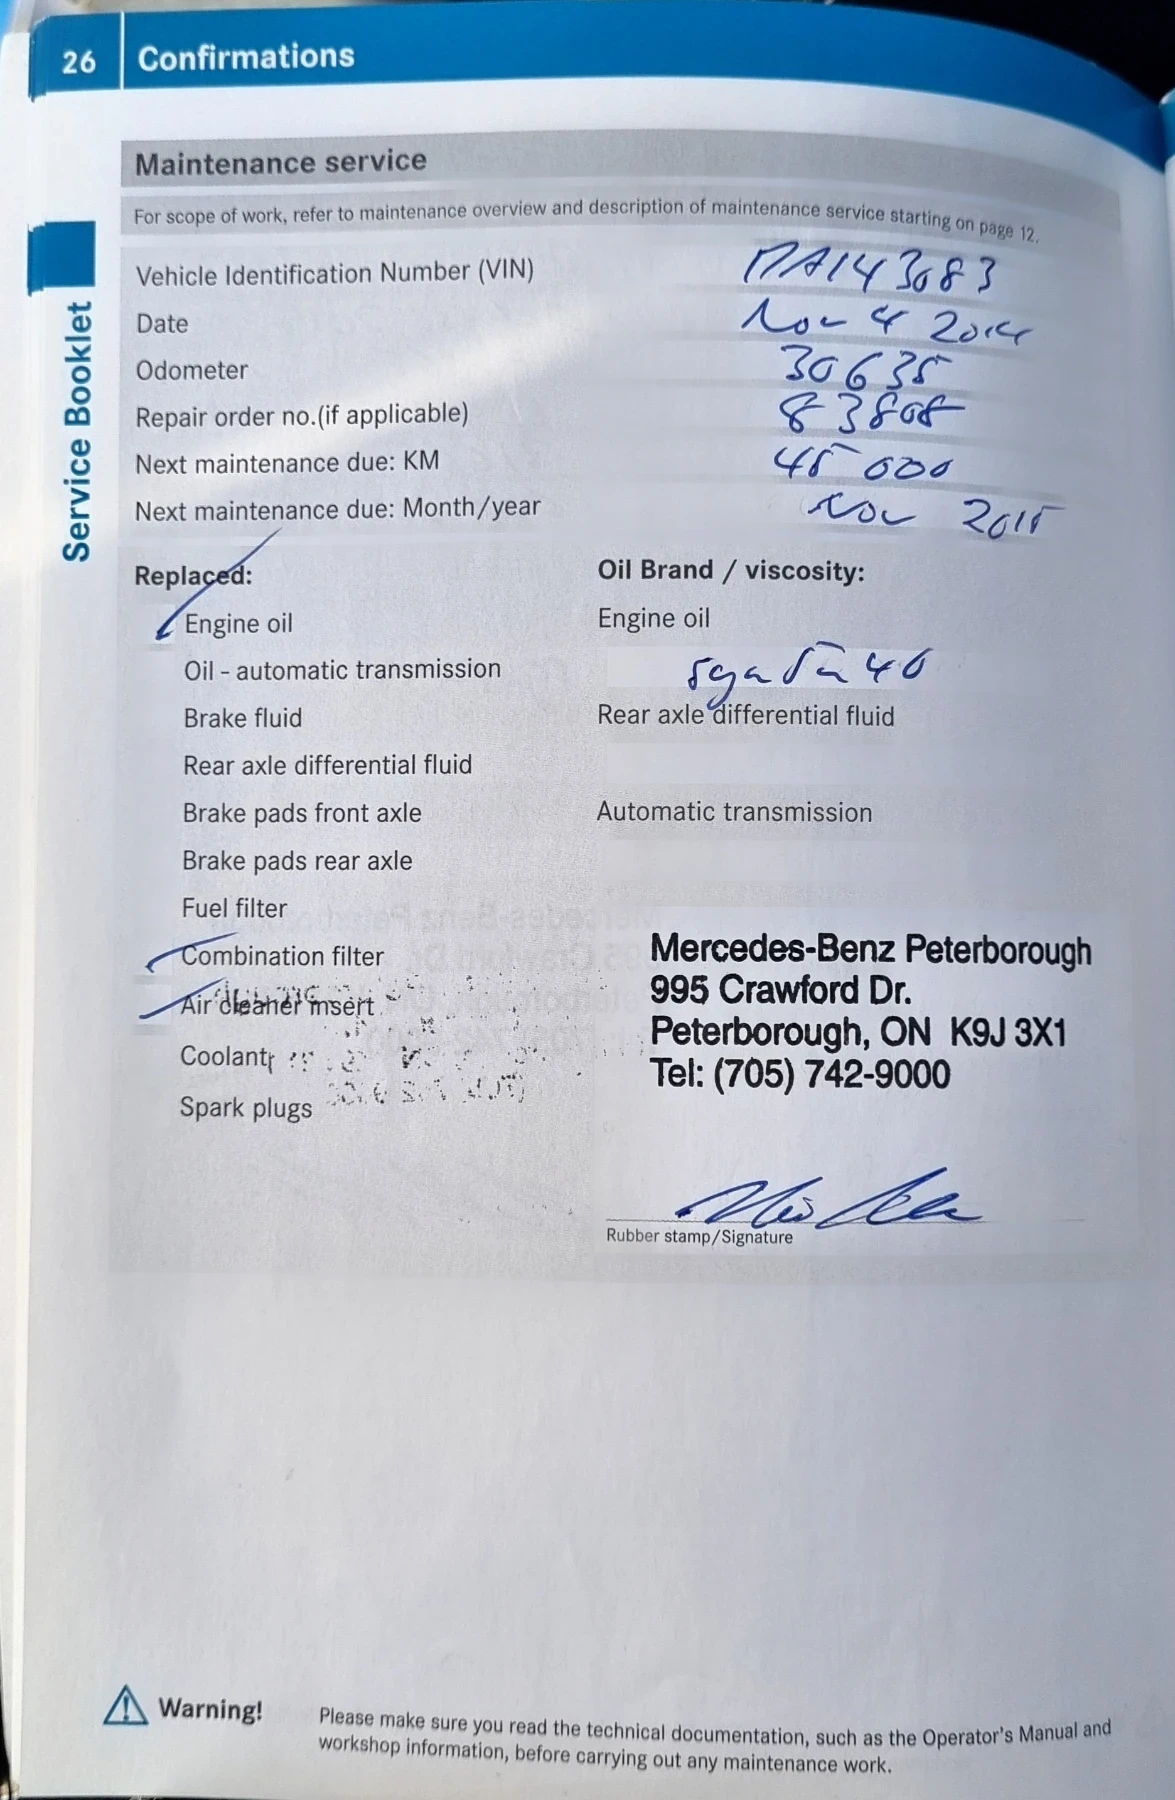 26 Confirmations
Maintenance service
For scope of work, refer to maintenance overview and description of maintenance service starting on page 12.
Vehicle Identification Number (VIN) DA143083
Date Nov 4 2014
Odometer 30635
Repair order no.(if applicable) 83808
Next maintenance due: KM 45 000
Next maintenance due: Month/year Nov 2015
Replaced: Oil Brand / viscosity:
Engine oil Engine oil
Oil - automatic transmission 40
Brake fluid Rear axle differential fluid
Rear axle differential fluid
Brake pads front axle Automatic transmission
Brake pads rear axle
Fuel filter
Combination filter Mercedes-Benz Peterborough
Air cleaner insert 995 Crawford Dr.
Coolant Peterborough, ON K9J 3X1
Spark plugs Tel: (705) 742-9000
Rubber stamp/Signature
Service Booklet
Warning! Please make sure you read the technical documentation, such as the Operator's Manual and
workshop information, before carrying out any maintenance work.